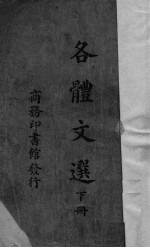 各體文選下冊
商務印書館發行